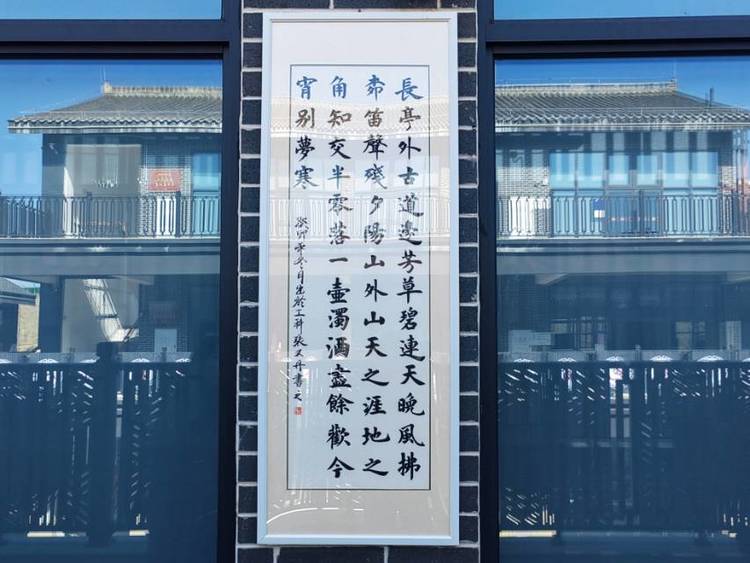 長亭外古道邊芳草碧連天晚風拂
柳笛聲殘夕陽山外山天之涯地之
角知交半零落一壺濁酒盡餘歡今
宵别夢寒
癸卯年冬月於工科張書之